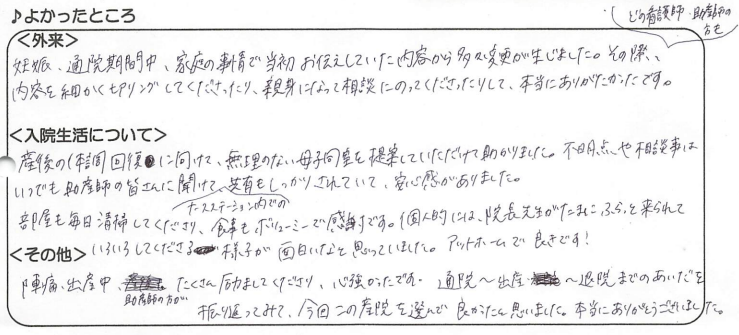 ♪よかったところ
どの看護師・助産師の方も
＜外来＞
妊娠、通院期間中、家庭の事情で当初お伝えしていた内容から多々変更が生じました。その際、
内容を細かくヒアリングしてくださったり、親身になって相談にのってくださったりして、本当にありがたかったです。
＜入院生活について＞
産後の体調回復に向けて、無理のない母子同室を提案していただけて助かりました。不明点や相談事は
いつでも助産師の皆さんに聞けて、共有もしっかりされていて、安心感がありました。
ナースステーション内での
部屋も毎日清掃してくださり、食事もボリューミーで感謝です。個人的には、院長先生がたまにふらっと来られて
＜その他＞いろいろしてくださる様子が面白いなと思っていました。アットホームで良きです！
陣痛、出産中 たくさん励ましてくださり、心強かったです。通院～出産～退院までのあいだを
助産師の方が
振り返ってみて、今回この産院を選んで良かったと思いました。本当にありがとうございました。